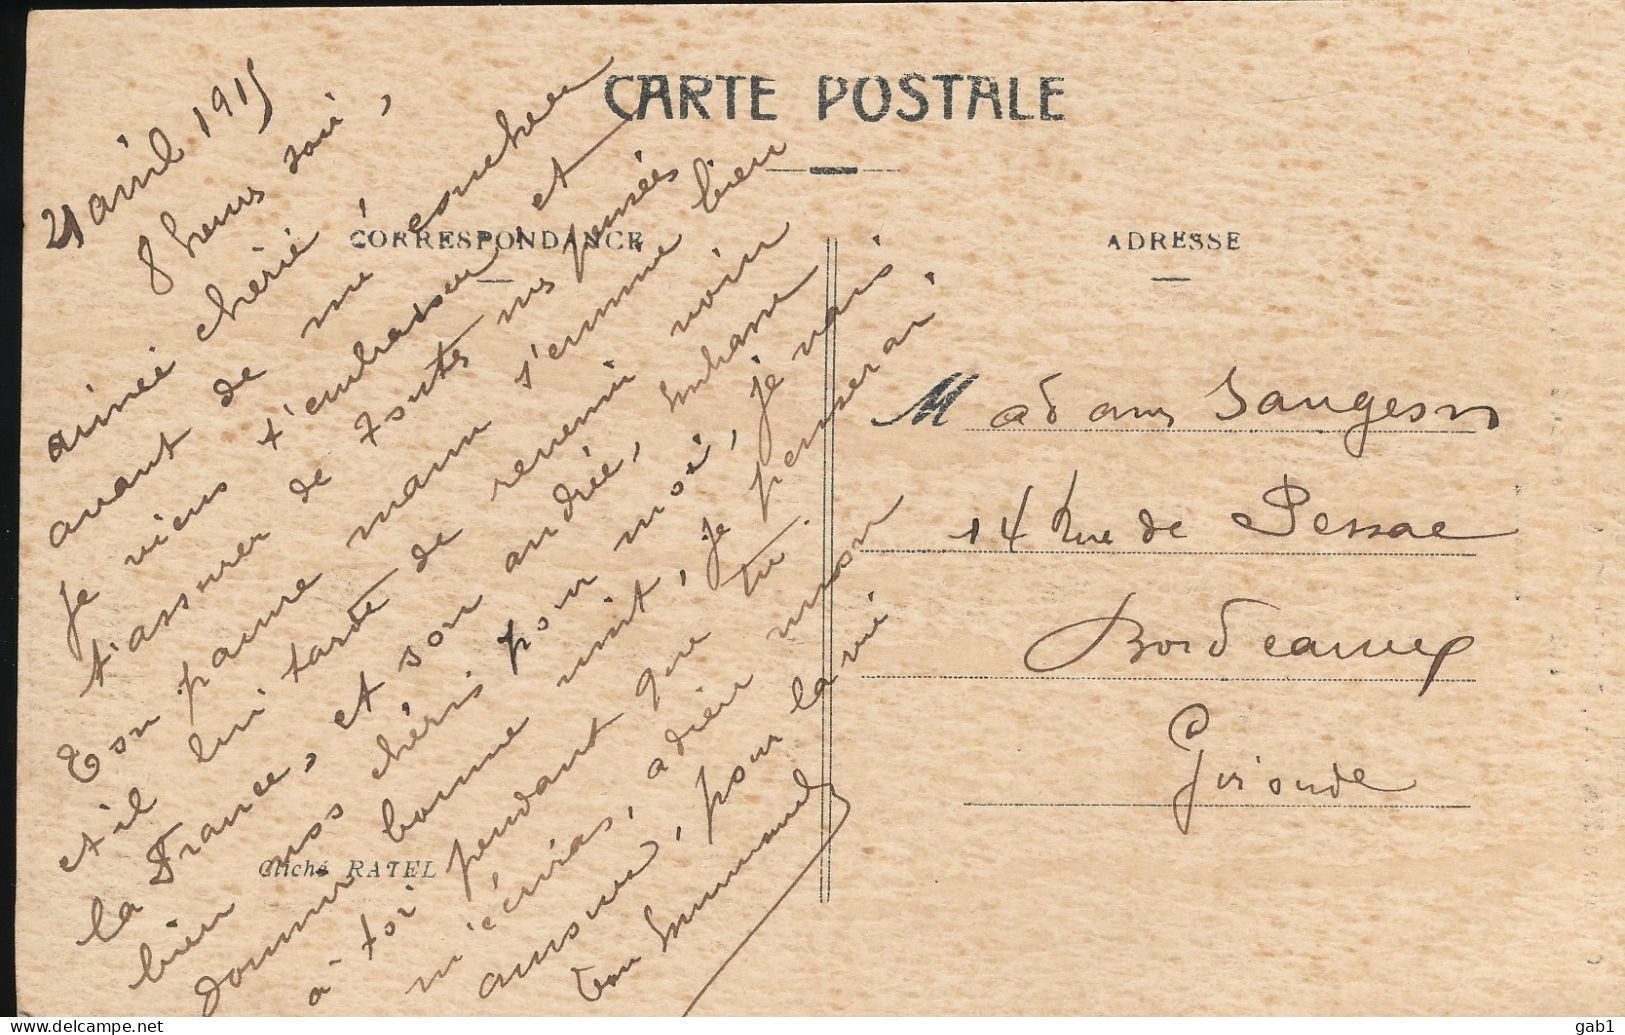 CARTE POSTALE
CORRESPONDANCE
ADRESSE
21 avril 1915
8 heures soir,
aimée chérie
avant de me coucher
Je viens t'embrasser et
t'assurer de toutes mes pensées
Ton pauvre mann s'ennuie bien
et il lui tarde de revenir voir
la France, et son andrée, embrasse
bien nos chéris pour moi, je vais
dormir bonne nuit, je penserai
à toi pendant que tu
m'écriras, adieu mson
amour, pour la vie
ton Emmanuel
Cliché RATEL
Madame Saugeson
14 Rue de Pessac
Bordeaux
Gironde
delcampe.net
gab1